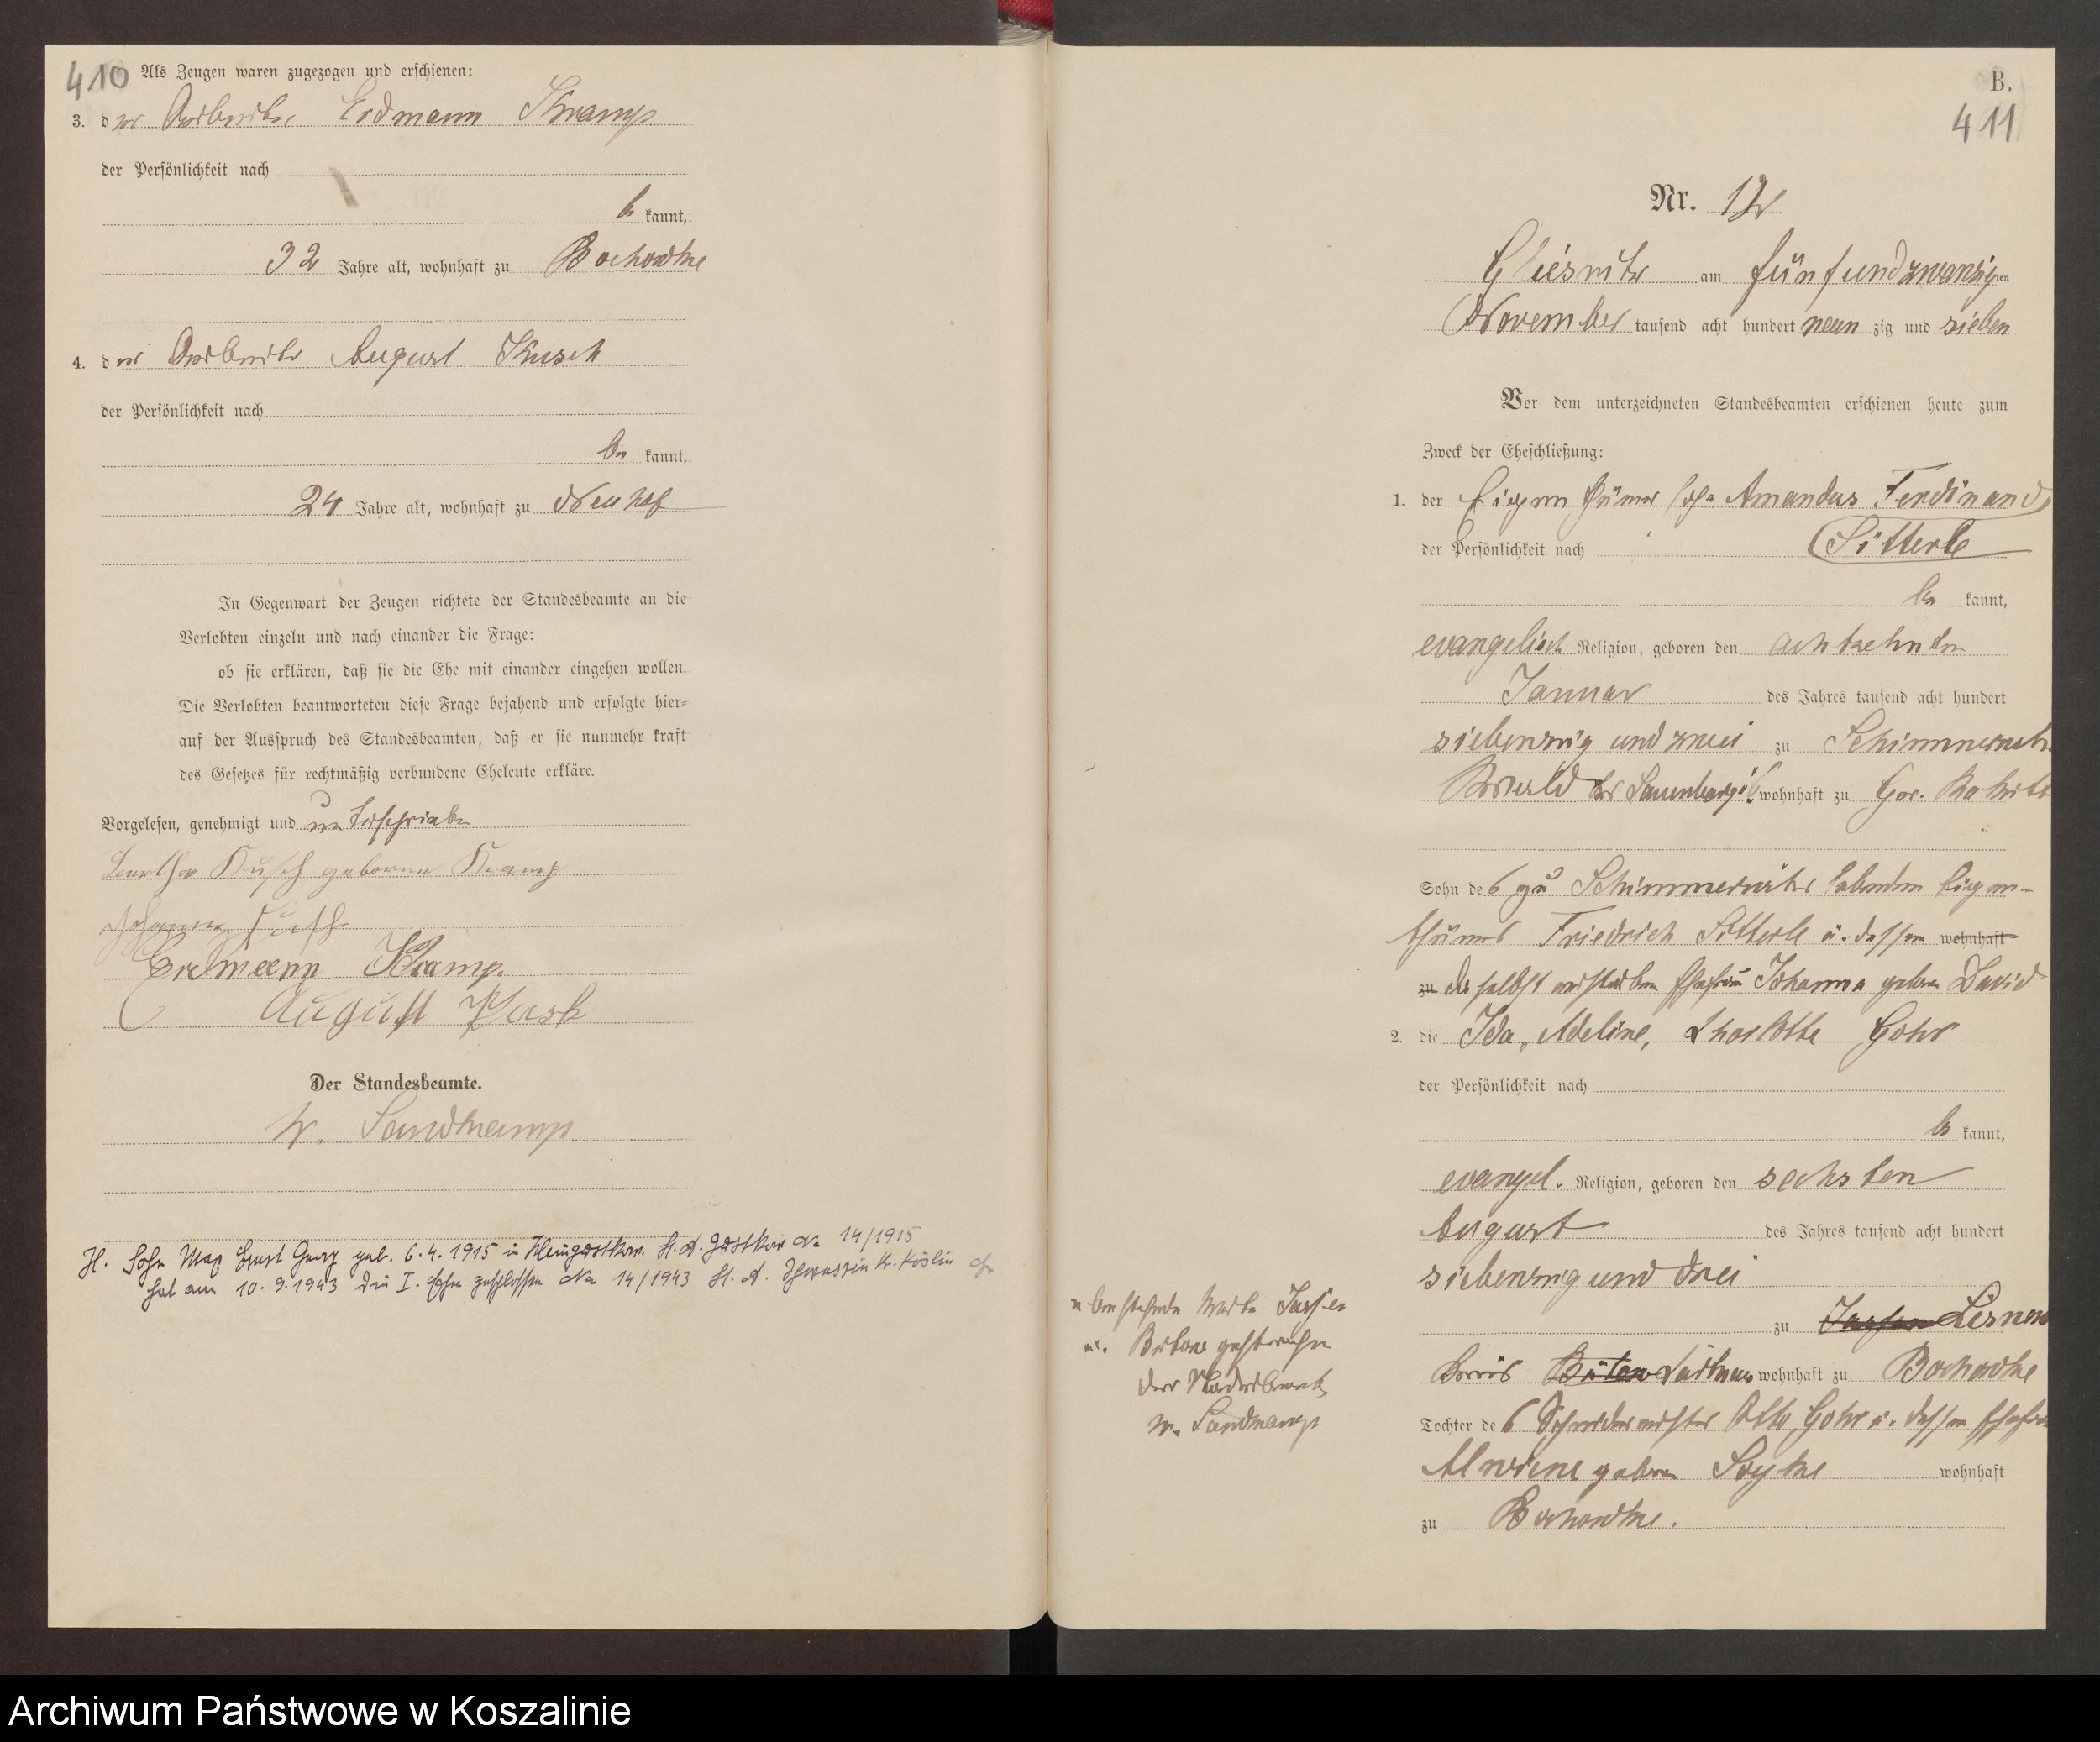 410
Als Zeugen waren zugezogen und erschienen:
3. der Arbeiter Erdmann Kramp
der Persönlichkeit nach
be kannt,
32 Jahre alt, wohnhaft zu Bochowke
4. der Arbeiter August Kusch
der Persönlichkeit nach
be kannt,
24 Jahre alt, wohnhaft zu Neuhof
In Gegenwart der Zeugen richtete der Standesbeamte an die
Verlobten einzeln und nach einander die Frage:
ob sie erklären, daß sie die Ehe mit einander eingehen wollen.
Die Verlobten beantworteten diese Frage bejahend und erfolgte hier-
auf der Ausspruch des Standesbeamten, daß er sie nunmehr kraft
des Gesetzes für rechtmäßig verbundene Eheleute erkläre.
Vorgelesen, genehmigt und unterschrieben
Bertha Kusch geborene Kramp
Kusch
Erdmann Kramp.
August Kusch
Der Standesbeamte.
W. Sandkamp
H. Sohn Max Ernst Georg geb. 6.4.1915 in St. A. No 14/1915
hat am 10.9.1943 die I. Ehe geschlossen No 14/1943 St. A. Kr. Köslin
B.
411
Nr. 12
Gliesnitz am fünfundzwanzig ten
November tausend acht hundert neun zig und sieben
Vor dem unterzeichneten Standesbeamten erschienen heute zum
Zweck der Eheschließung:
1. der Eigenthümer Amandus Ferdinand
der Persönlichkeit nach Sitterle
be kannt,
evangelisch Religion, geboren den achtzehnten
Januar des Jahres tausend acht hundert
siebenzig und zwei zu Schimmerwitz
Lauenburg i/ wohnhaft zu Gor.
Sohn des zu Schimmerwitz lebenden Eigen-
thümers Friedrich Sitterle u. dessen wohnhaft
zu daselbst verstorben Ehefrau Johanna geboren David
2. die Ida, Adeline, Charlotte Gohr
der Persönlichkeit nach
be kannt,
evangel. Religion, geboren den sechsten
August des Jahres tausend acht hundert
siebenzig und drei
zu Lisnow
Kreis Bütow Karthaus wohnhaft zu Bochowke
Tochter des Schneidermeister Otto Gohr u. dessen Ehefrau
Alwiene geboren wohnhaft
zu Bochowke.
nebenstehende Worte
u. Bütow gestrichen
W. Sandkamp
Archiwum Państwowe w Koszalinie